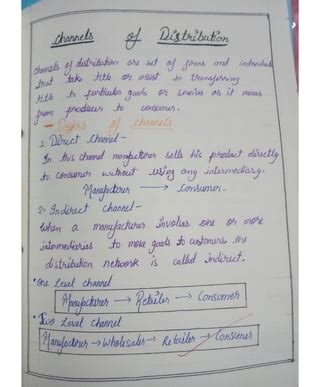 Channels of Distribution
Channels of distribution are set of firms and individuals
that take title or assist in transferring
title to particular goods or services as it moves
from producer to consumer.
- Types of channels
1. Direct Channel -
In this channel manufacturer sells his product directly
to consumer without using any intermediary.
Manufacturer → Consumer.
2. Indirect channel -
When a manufacturer involves one or more
intermediaries to move goods to customers the
distribution network is called indirect.
• One Level channel
Manufacturer → Retailer → Consumer
• Two Level channel
Manufacturer → Wholesaler → Retailer → Consumer